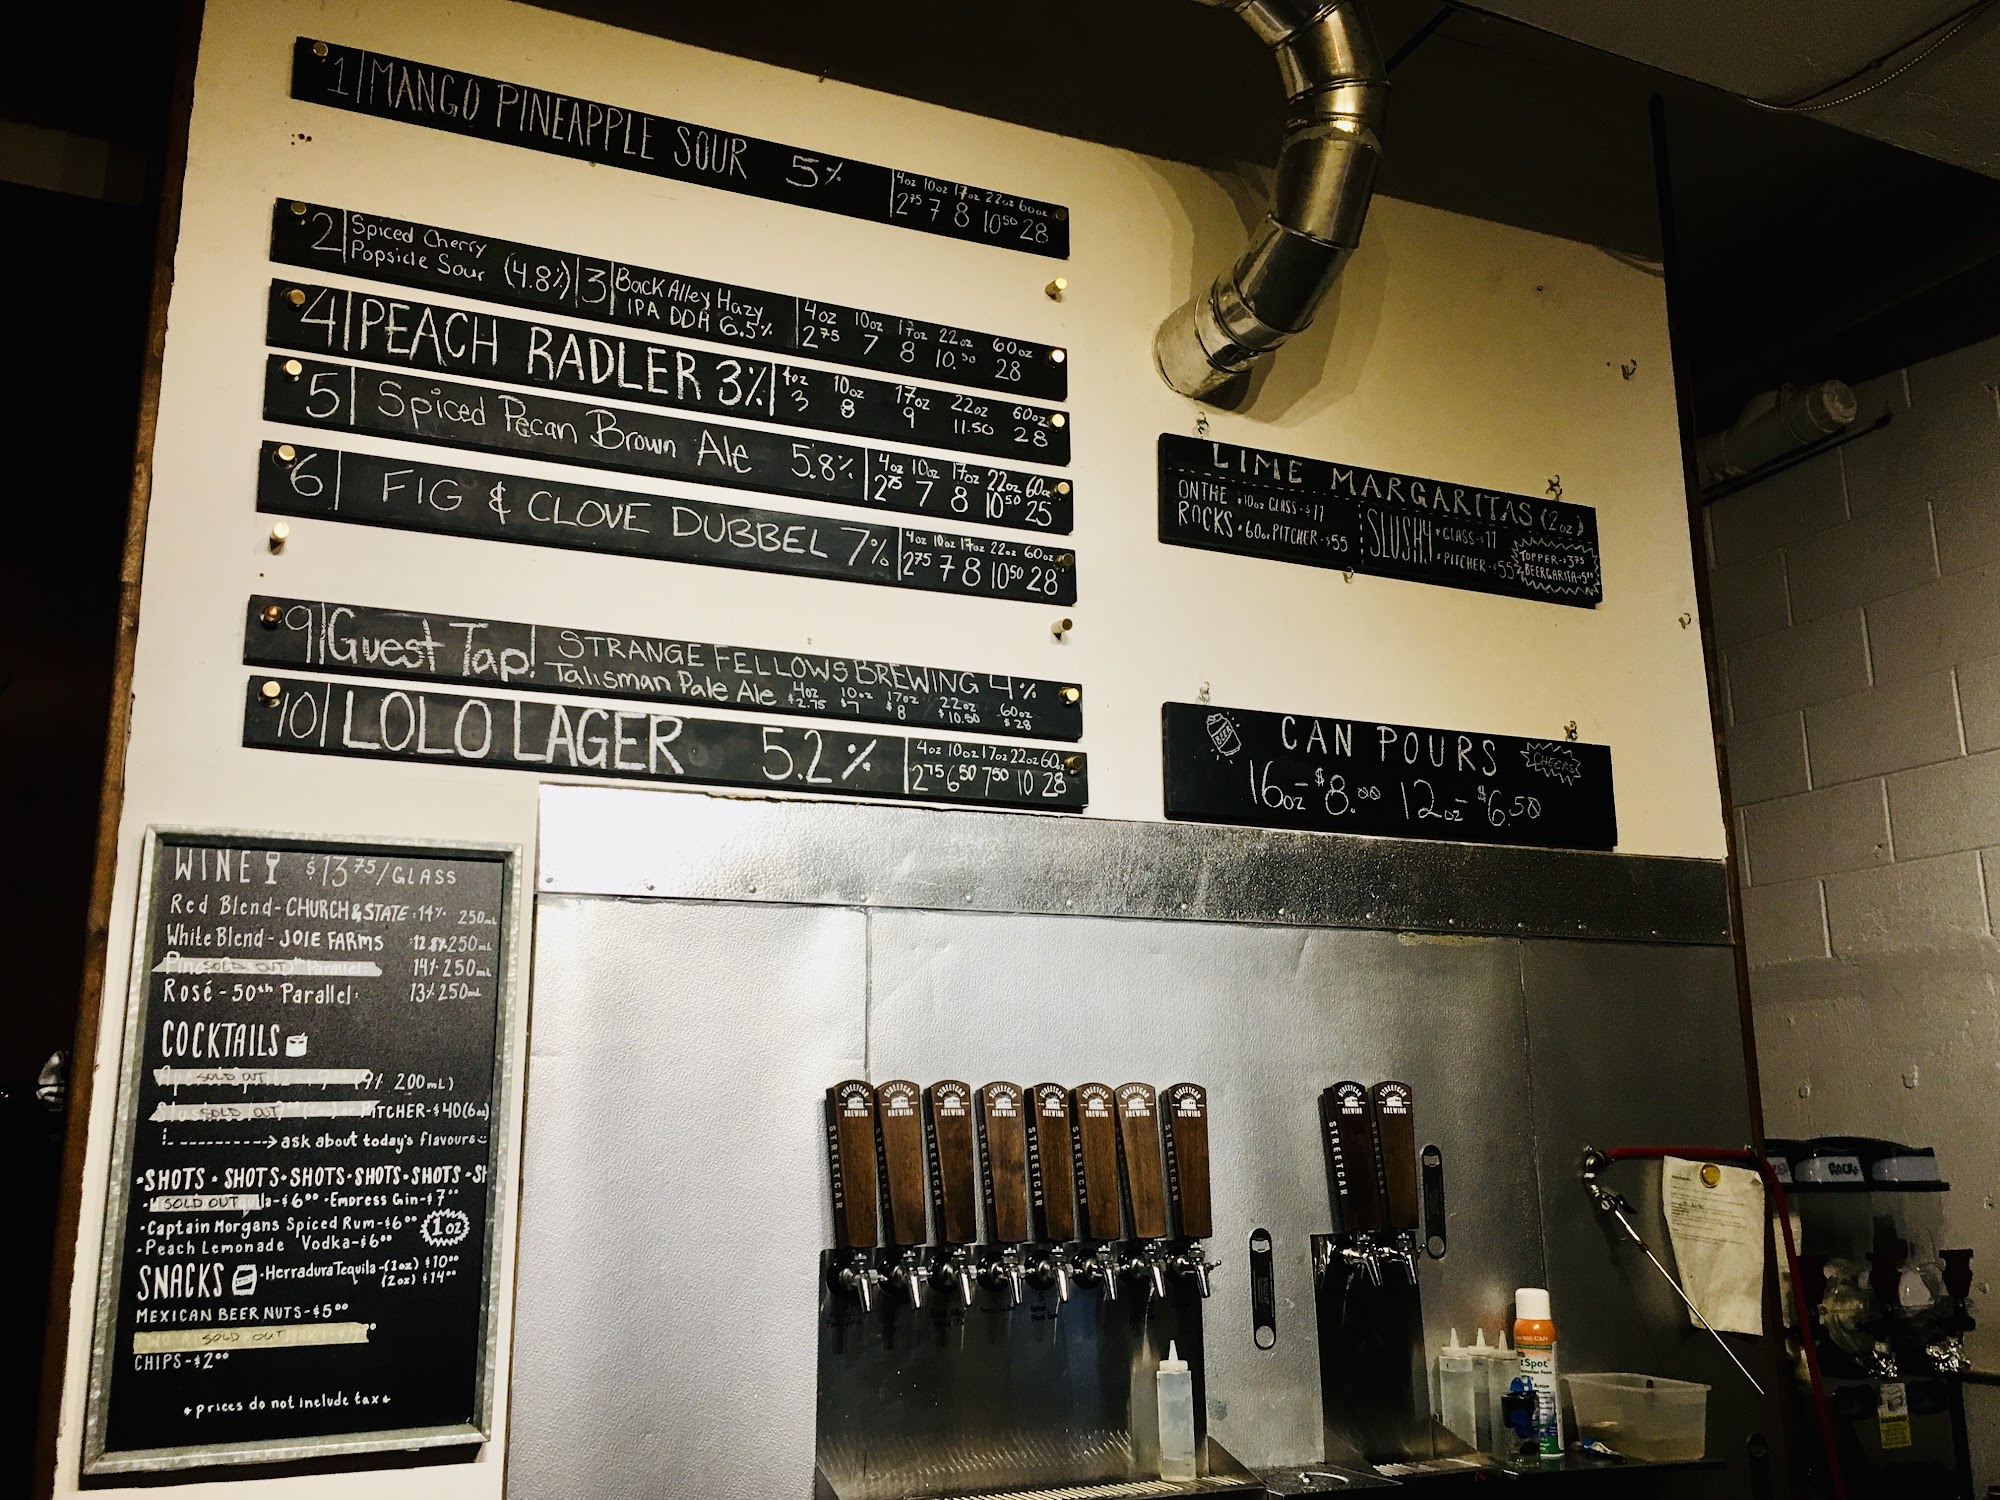 1 MANGO PINEAPPLE SOUR 5%
4oz 10oz 17oz 22oz 60oz
2.75 7 8 10.50 28
2 Spiced Cherry
Popsicle Sour (4.8%)
3 Back Alley Hazy
IPA DDH 6.5%
4oz 10oz 17oz 22oz 60oz
2.75 7 8 10.50 28
4 PEACH RADLER 3%
4oz 10oz 17oz 22oz 60oz
3 8 9 11.50 28
5 Spiced Pecan Brown Ale 5.8%
4oz 10oz 17oz 22oz 60oz
2.75 7 8 10.50 25
6 FIG & CLOVE DUBBEL 7%
4oz 10oz 17oz 22oz 60oz
2.75 7 8 10.50 28
9 Guest Tap! STRANGE FELLOWS BREWING 4%
Talisman Pale Ale 4oz 10oz 17oz 22oz 60oz
$2.75 $7 $8 $10.50 $28
10 LOLO LAGER 5.2%
4oz 10oz 17oz 22oz 60oz
2.75 6.50 7.50 10 28
LIME MARGARITAS (2oz)
ON THE ROCKS
•10oz GLASS-$11
•60oz PITCHER-$55
SLUSHY
•GLASS-$11
•PITCHER-$55
TOPPER-$3.75
BEERGARITA-$5.00
BEER
CAN POURS
CHEERS
16oz-$8.00 12oz-$6.50
WINE $13.75/GLASS
Red Blend-CHURCH & STATE 14% 250mL
White Blend-JOIE FARMS 12.5% 250mL
SOLD OUT Parallel 14% 250mL
Rosé-50th Parallel 13% 250mL
COCKTAILS
SOLD OUT 200mL)
SOLD OUT PITCHER-$40(6oz)
ask about today's flavours
•SHOTS•SHOTS•SHOTS•SHOTS•SHOTS•SH
SOLD OUT la-$6.00 •Empress Gin-$7
•Captain Morgans Spiced Rum-$6.00
1oz
•Peach Lemonade Vodka-$6.00
•Herradura Tequila-(1oz) $10.00
(2oz) $14.00
SNACKS
MEXICAN BEER NUTS-$5.00
SOLD OUT
CHIPS-$2.00
*prices do not include tax*
STREETCAR BREWING
STREETCAR
STREETCAR BREWING
STREETCAR
STREETCAR BREWING
STREETCAR
STREETCAR BREWING
STREETCAR
STREETCAR BREWING
STREETCAR
STREETCAR BREWING
STREETCAR
STREETCAR BREWING
STREETCAR
STREETCAR BREWING
STREETCAR
STREETCAR BREWING
STREETCAR
STREETCAR BREWING
STREETCAR
Spot
ROCKS